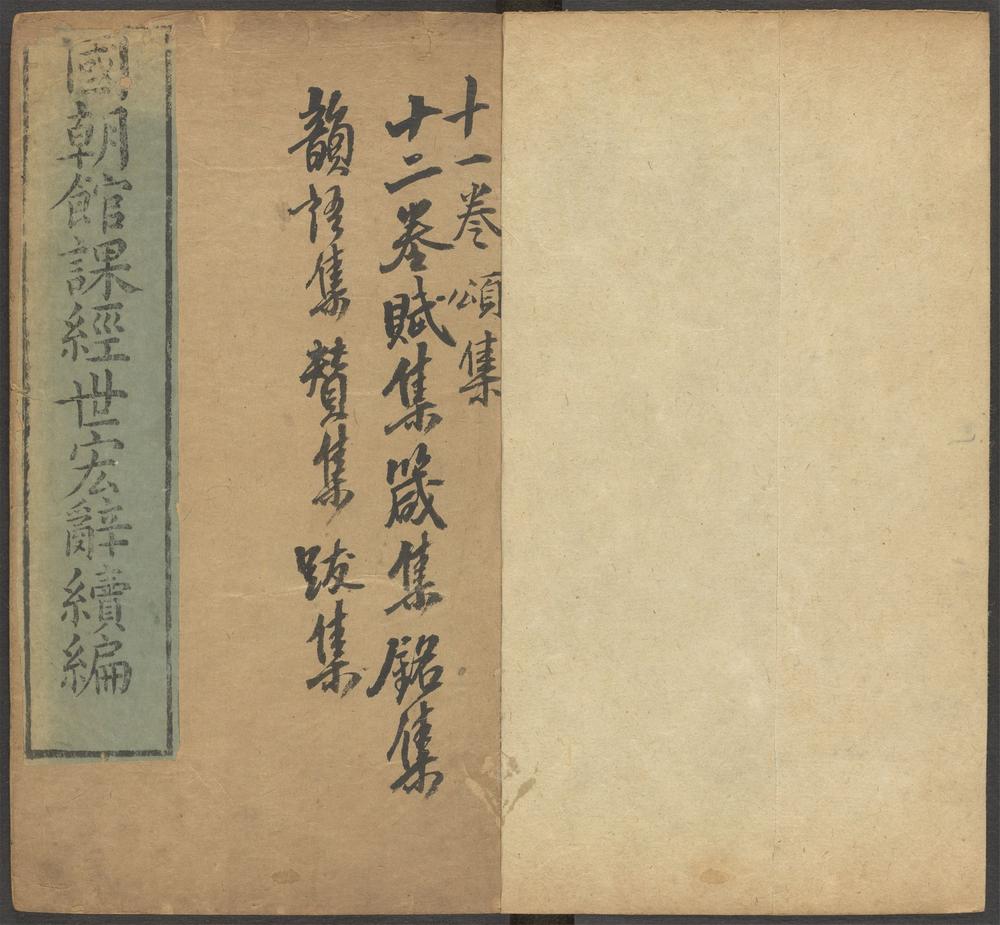 十一卷頌集
十二卷賦集箴集銘集
韻語集贊集跋集
國朝館課經世宏辭續編